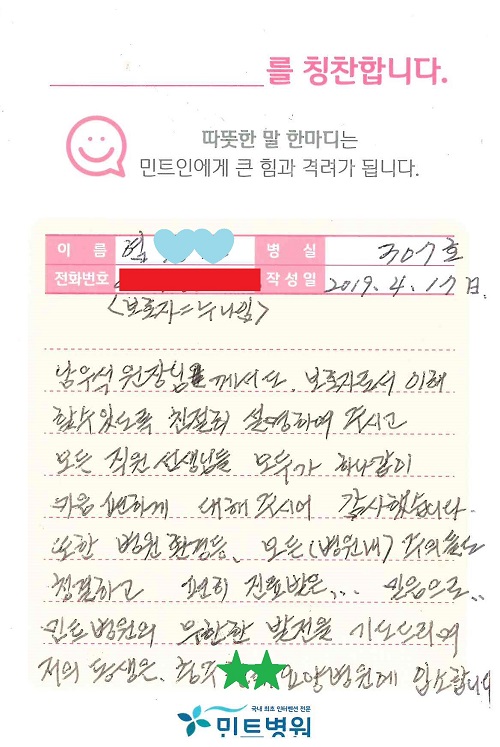 를 칭찬합니다.
따뜻한 말 한마디는
민트인에게 큰 힘과 격려가 됩니다.
이 름 병 실 307호
전화번호 작성일 2019. 4. 17 일.
<보호자=누나임>
남우식 원장님께서도 보호자로서 이해
할수있도록 친절히 설명하여 주시고
모든 직원 선생님들 모두가 하나같이
마음 편하게 대해 주시어 감사했습니다
또한 병원환경등, 모든(병원내)
청결하고 편히 진료받은... 믿음으로..
민트병원의 무한한 발전을 기도드리며
저의 동생은. 요양병원에 입소합니다
국내 최초 인터벤션 전문
민트병원